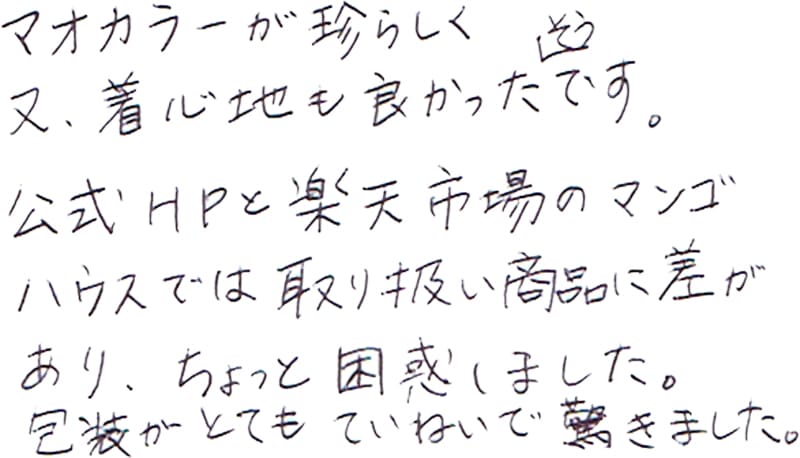 マオカラーが珍らしく
又、着心地も良かったそうです。
公式HPと楽天市場のマンゴ
ハウスでは取り扱い商品に差が
あり、ちょっと困惑しました。
包装がとてもていねいで驚きました。